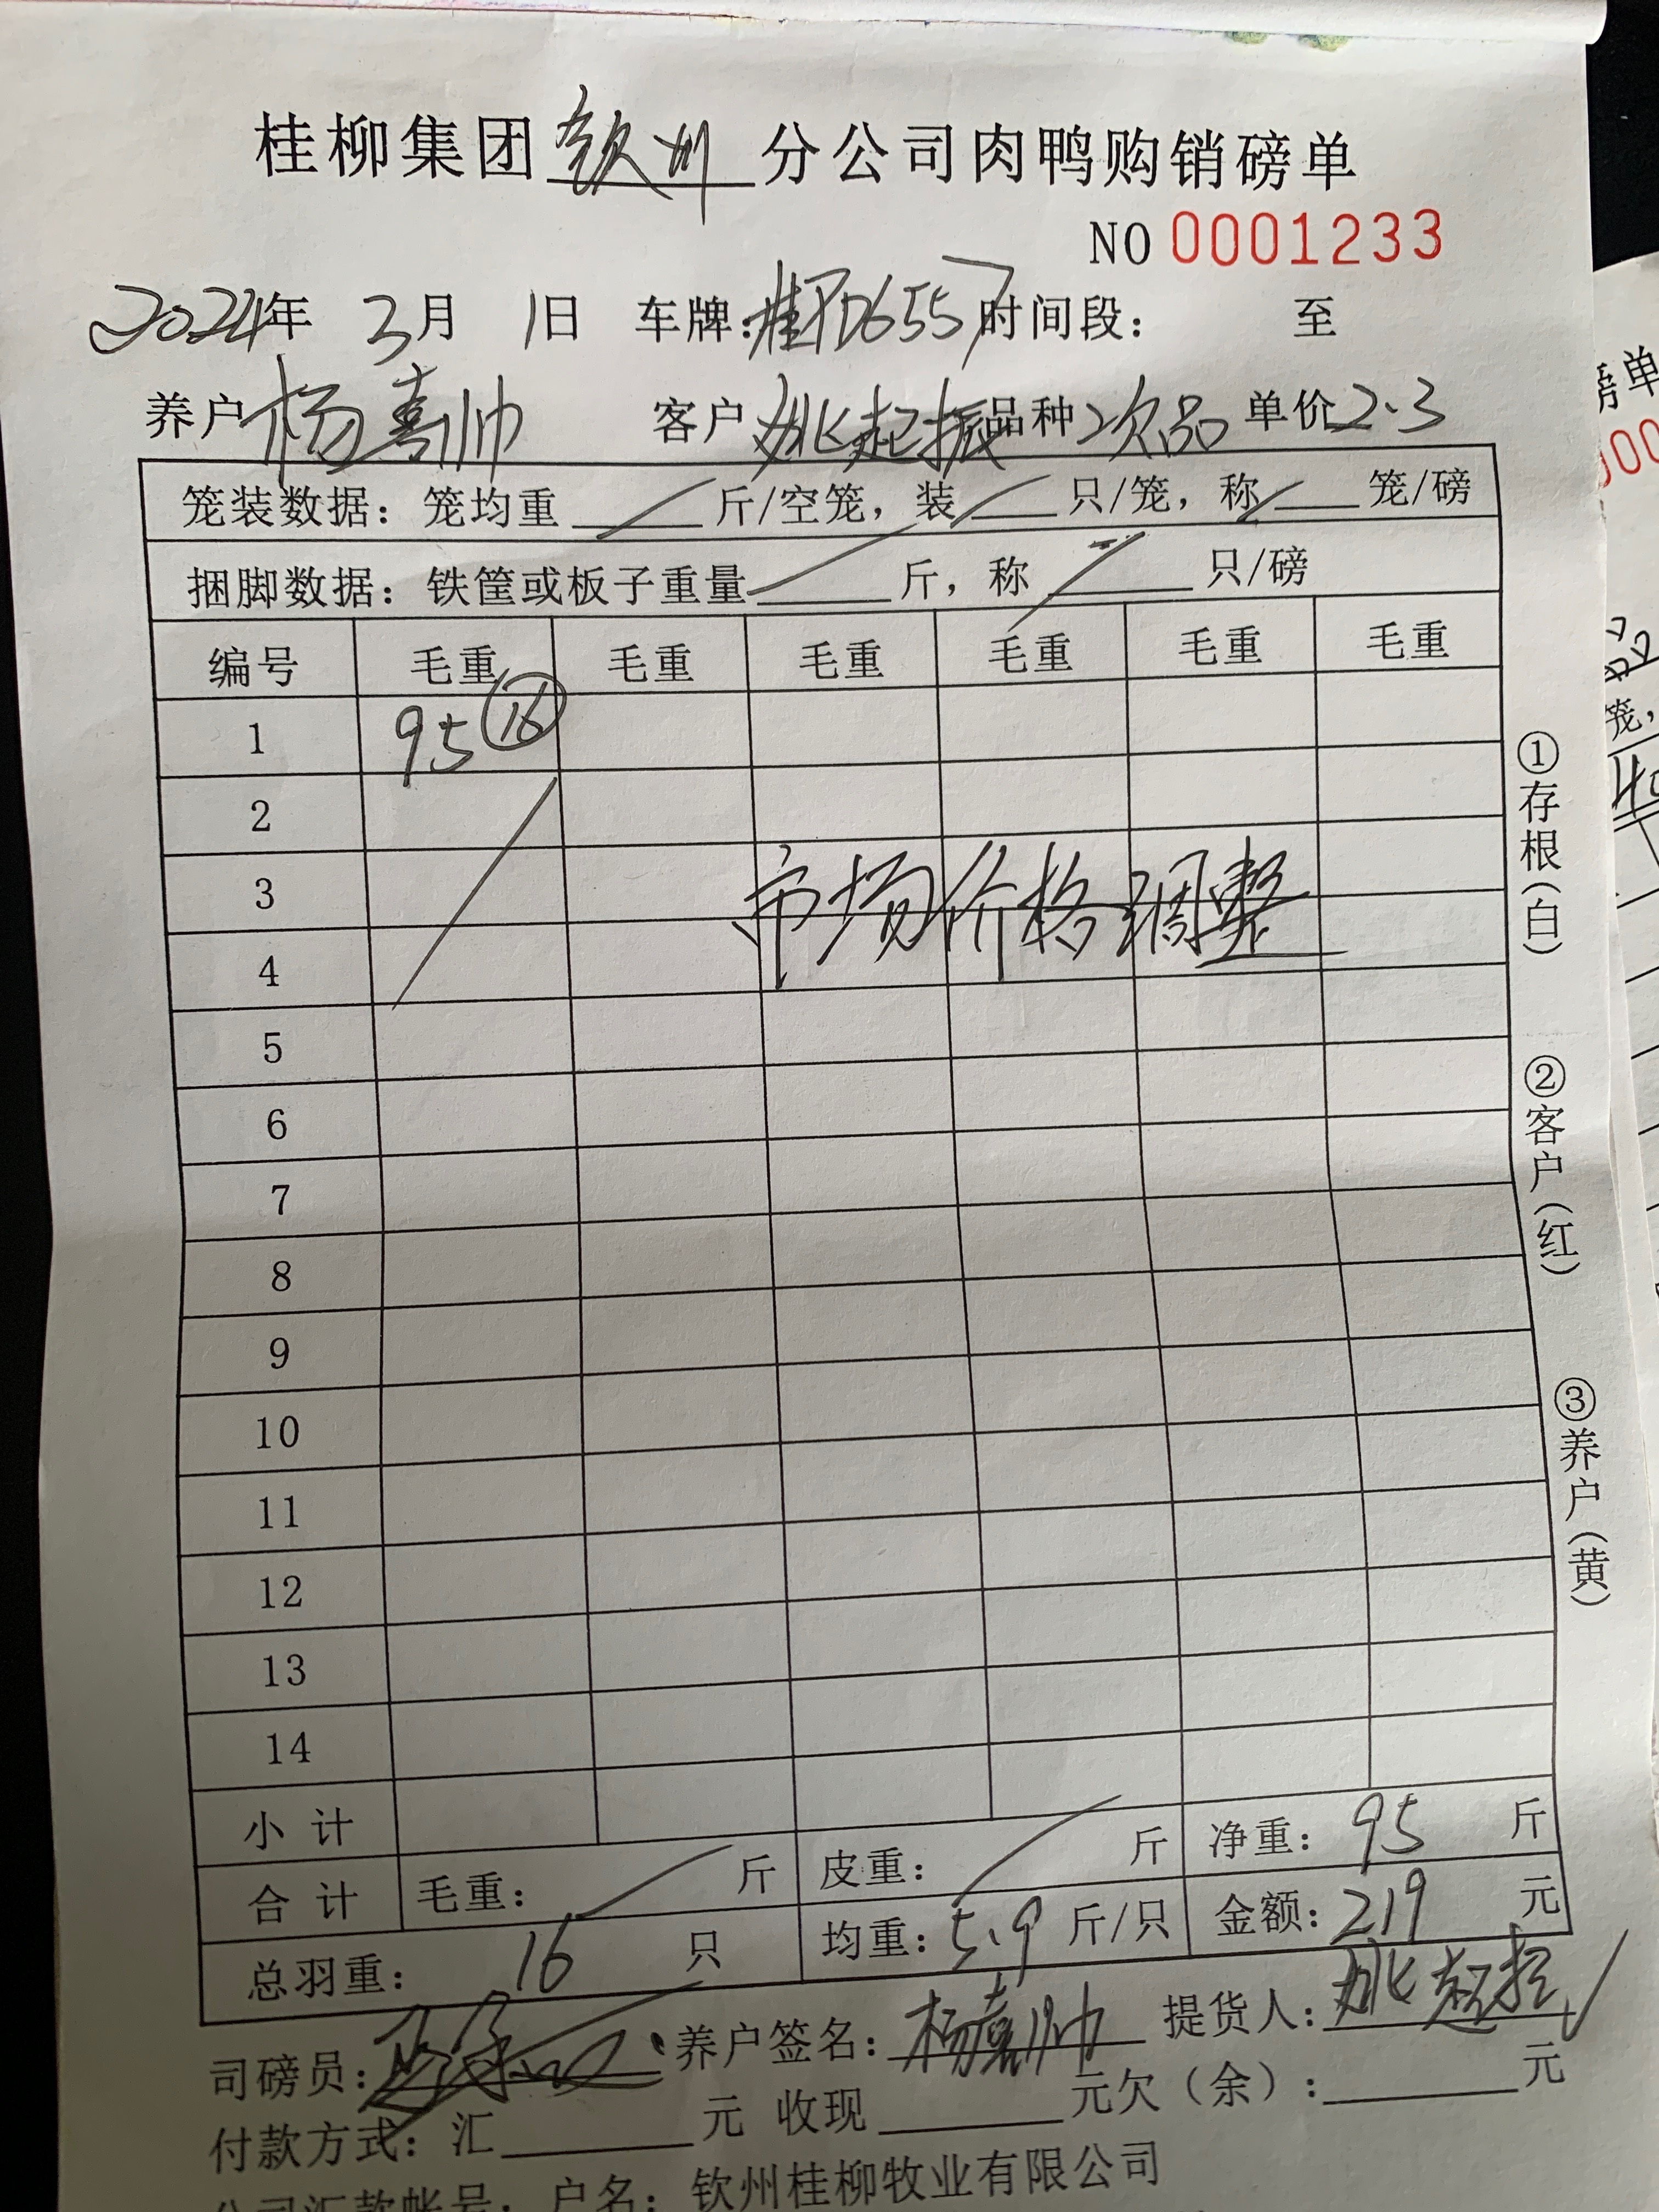 桂柳集团钦州分公司肉鸭购销磅单
NO 0001233
2024年 3月 1日 车牌:桂PD6557 时间段: 至
养户 杨嘉帅 客户 姚起振 品种 次品 单价 2.3
笼装数据: 笼均重 斤/空笼, 装 只/笼, 称 笼/磅
捆脚数据: 铁筐或板子重量 斤, 称 只/磅
编号 毛重 毛重 毛重 毛重 毛重 毛重
1 95 16
2
3 市场价格调整
4
5
6
7
8
9
10
11
12
13
14
小计
合计 毛重: 斤 皮重: 斤 净重: 95 斤
总羽重: 16 只 均重: 5.9 斤/只 金额: 219 元
司磅员: 养户签名: 杨嘉帅 提货人: 姚起振
付款方式: 汇 元 收现 元欠(余): 元
公司汇款帐号: 户名: 钦州桂柳牧业有限公司
①存根(白)
②客户(红)
③养户(黄)
磅单
笼,